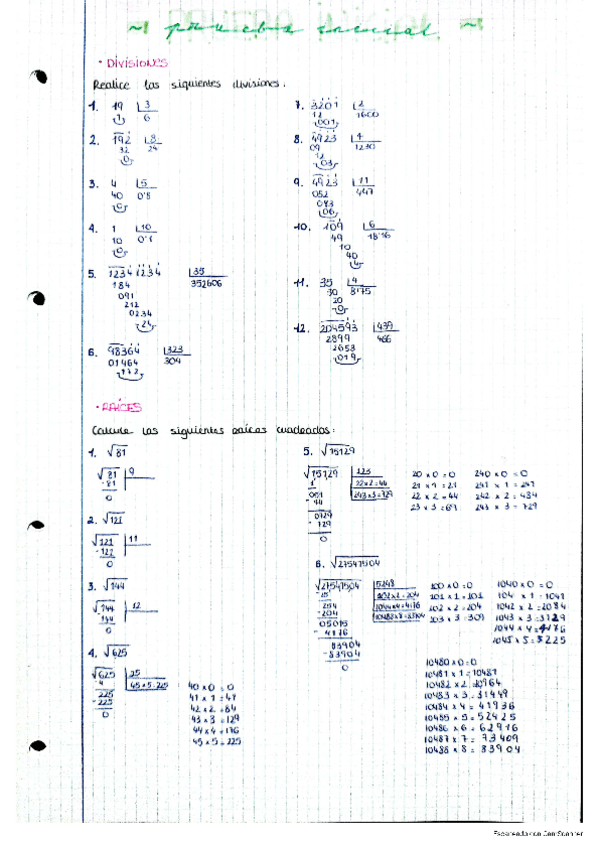 ~ prueba inicial ~
· DIVISIONES
Realice las siguientes divisiones.
1. 19 | 3
1 6
2. 192 | 8
32 24
0
3. 4 | 5
40 0'8
0
4. 1 | 10
10 0'1
0
5. 12341234 | 35
184 352606
091
212
0234
24
6. 98364 | 323
01464 304
172
7. 3201 | 2
12 1600
001
8. 4923 | 4
09 1230
12
03
9. 4923 | 11
052 447
083
06
10. 109 | 6
49 18'16
10
40
4
11. 35 | 4
30 8'75
20
0
12. 204593 | 439
2899 466
2653
019
· RAÍCES
Calcule las siguientes raíces cuadradas:
1. √81
√81 | 9
-81
0
2. √121
√121 | 11
-121
0
3. √144
√144 | 12
-144
0
4. √625
√625 | 25
-4 45×5=225
225
-225
0
40×0=0
41×1=41
42×2=84
43×3=129
44×4=176
45×5=225
5. √15129
√15129 | 123
1 22×2=44
051 243×3=729
-44
0729
-729
0
20×0=0
21×1=21
22×2=44
23×3=69
240×0=0
241×1=241
242×2=484
243×3=729
6. √27541504
√27541504 | 5248
-25 102×2=204
254 1044×4=4176
-204 10488×8=83904
05015
-4176
83904
-83904
0
100×0=0
101×1=101
102×2=204
103×3=309
1040×0=0
104 ×1=1041
1042×2=2084
1043×3=3129
1044×4=4176
1045×5=5225
10480×0=0
10481×1=10481
10482×2=20964
10483×3=31449
10484×4=41936
10485×5=52425
10486×6=62916
10487×7=73409
10488×8=83904
Escaneado con CamScanner